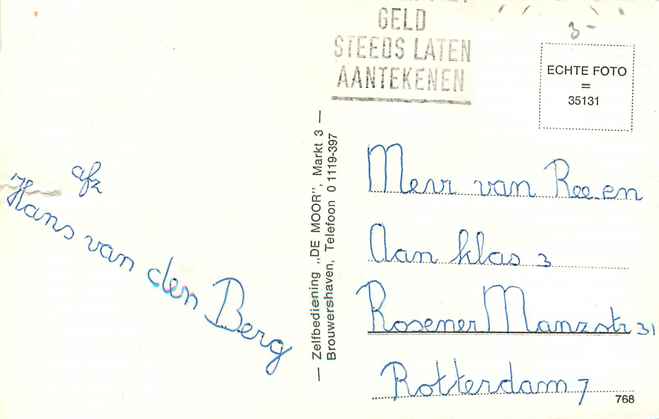 GELD
STEEDS LATEN
AANTEKENEN
3-
ECHTE FOTO
=
35131
afz
Hans van den Berg
— Zelfbediening „DE MOOR", Markt 3 —
Brouwershaven, Telefoon 0 1119-397
Mevr van Ree en
Aan klas 3
Rosener Manzstr 31
Rotterdam 7
768